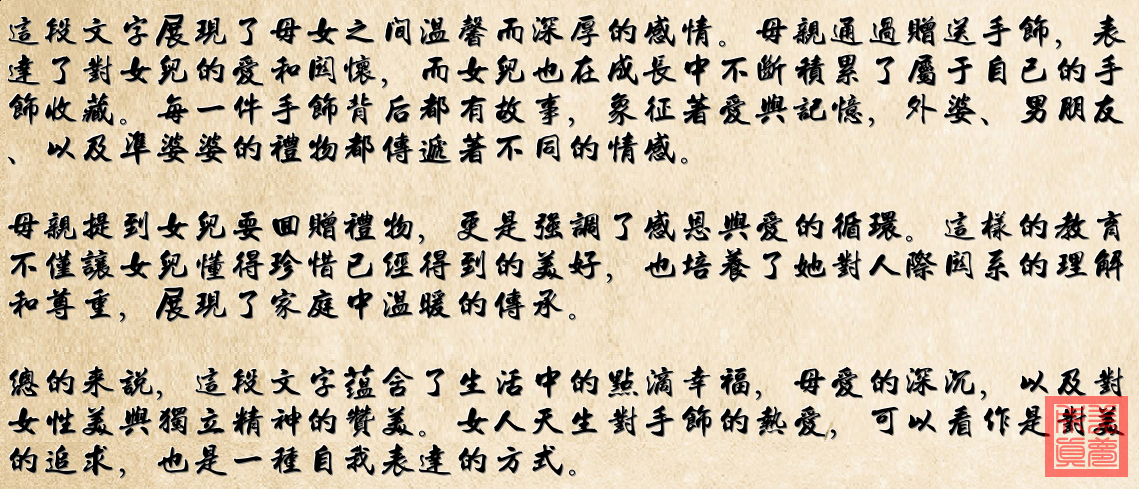 這段文字展現了母女之间溫馨而深厚的感情。母親通過贈送手飾，表
達了對女兒的愛和関懷，而女兒也在成長中不斷積累了屬于自己的手
飾收藏。每一件手飾背后都有故事，象征著愛與記憶，外婆、男朋友
、以及準婆婆的禮物都傳遞著不同的情感。
母親提到女兒要回贈禮物，更是強調了感恩與愛的循環。這樣的教育
不僅讓女兒懂得珍惜已經得到的美好，也培養了她對人際関系的理解
和尊重，展現了家庭中溫暖的傳承。
總的來説，這段文字蕴含了生活中的點滴幸福，母愛的深沉，以及對
女性美與獨立精神的贊美。女人天生對手飾的熱愛，可以看作是對美
的追求，也是一種自我表達的方式。